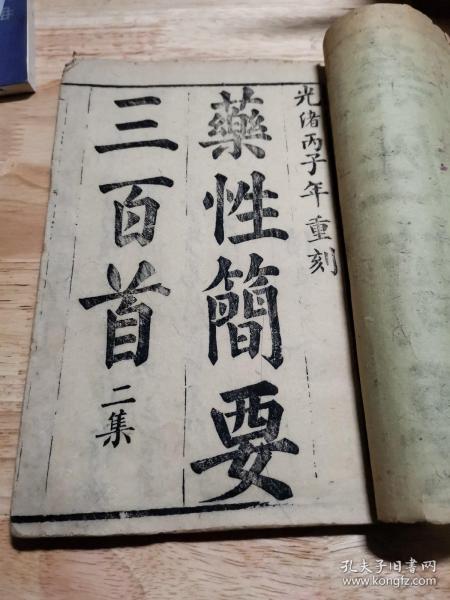 光緒丙子年重刻
藥性簡要
三百首
二集
孔夫子旧书网
www.kongfz.com